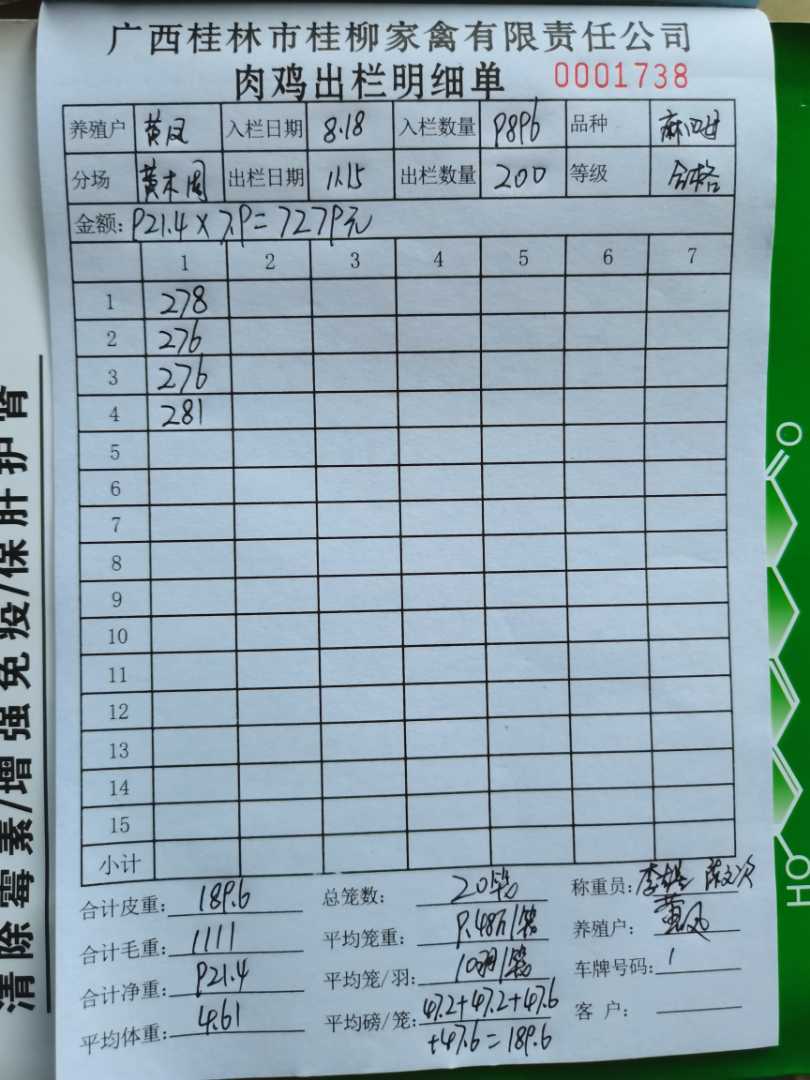 广西桂林市桂柳家禽有限责任公司
肉鸡出栏明细单 0001738
养殖户 黄凤 入栏日期 8.18 入栏数量 9896 品种
分场 黄木周 出栏日期 11.15 出栏数量 200 等级 合格
金额: 921.4 × 7.9 = 7279元
1 2 3 4 5 6 7
1 278
2 276
3 276
4 281
5
6
7
8
9
10
11
12
13
14
15
小计
合计皮重: 189.6 总笼数: 20笼 称重员:
合计毛重: 1111 平均笼重: 9.48斤/笼 养殖户: 黄凤
合计净重: 921.4 平均笼/羽: 10羽/笼 车牌号码: 1
平均体重: 4.61 平均磅/笼: 47.2+47.2+47.6 客户:
+47.6=189.6
清除霉素/增强免疫/保肝护肾
O
OH